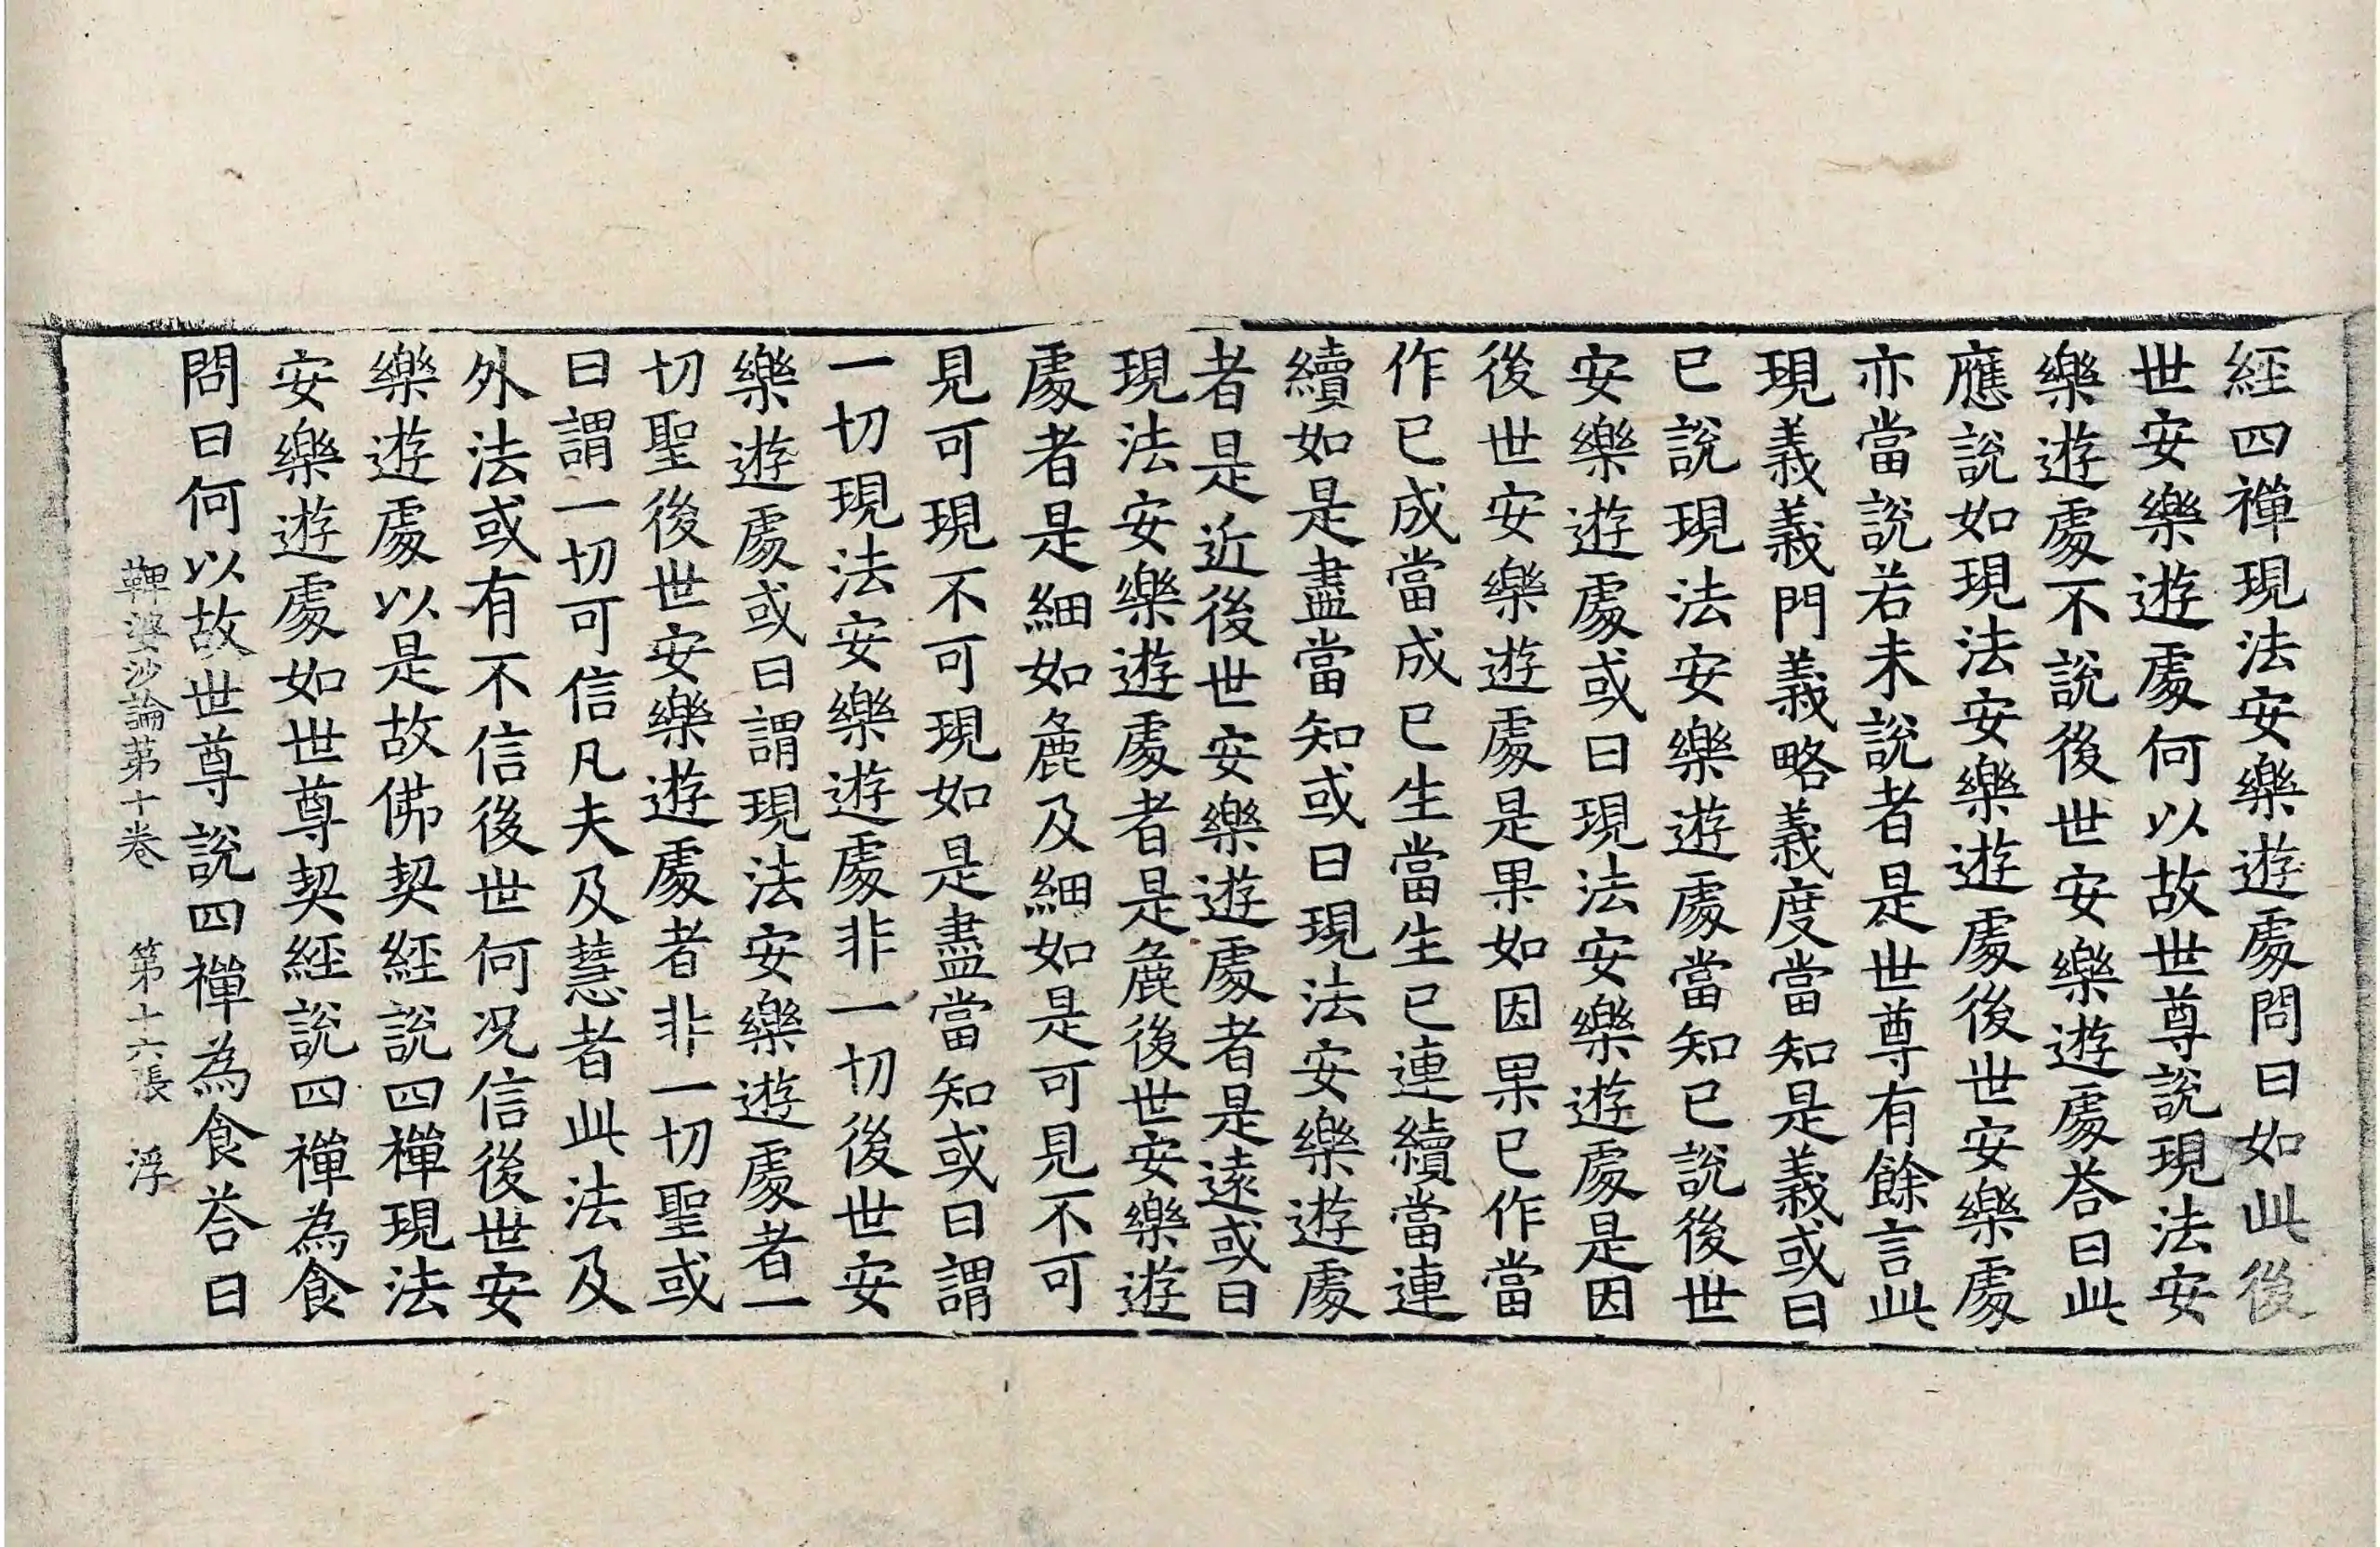 經四禪現法安樂遊處問曰如此後
世安樂遊處何以故世尊說現法安
樂遊處不說後世安樂遊處荅曰此
應說如現法安樂遊處後世安樂處
亦當說若未說者是世尊有餘言此
現義義門義略義度當知是義或曰
已說現法安樂遊處當知已說後世
安樂遊處或曰現法安樂遊處是因
後世安樂遊處是果如因果已作當
作已成當成已生當生已連續當連
續如是盡當知或曰現法安樂遊處
者是近後世安樂遊處者是遠或曰
現法安樂遊處者是麁後世安樂遊
處者是細如麁及細如是可見不可
見可現不可現如是盡當知或曰謂
一切現法安樂遊處非一切後世安
樂遊處或曰謂現法安樂遊處者一
切聖後世安樂遊處者非一切聖或
曰謂一切可信凡夫及慧者此法及
外法或有不信後世何况信後世安
樂遊處以是故佛契經說四禪現法
安樂遊處如世尊契經說四禪為食
問曰何以故世尊說四禪為食荅曰
鞞婆沙論苐十卷 第十六張 浮